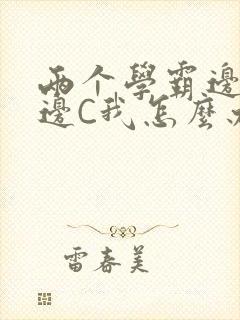 两个學霸邊
邊C我怎麼
雷春美